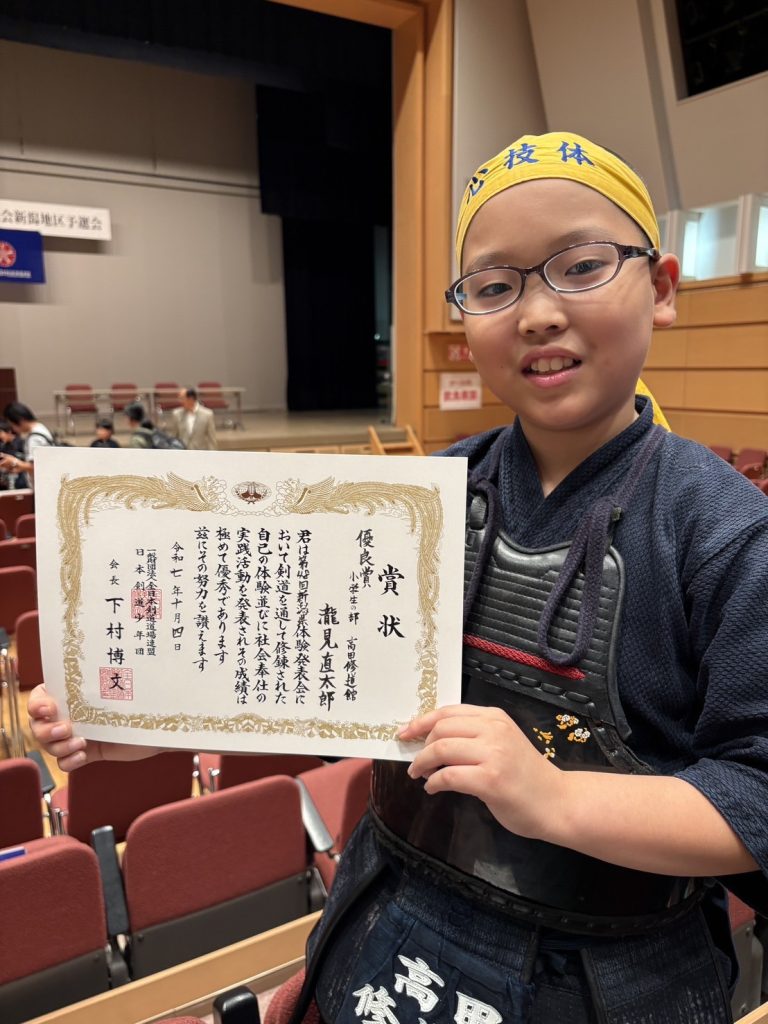 心技体
会新潟地区予選会
賞状
優良賞
小学生の部 高田修道館
瀧見直太郎
君は第48回新潟県体験発表会に
おいて剣道を通して修錬された
自己の体験並びに社会奉仕の
実践活動を発表されその成績は
極めて優秀であります
茲にその努力を讃えます
令和七年十月四日
一般財団法人全日本剣道道場連盟
日本剣道少年団
会長 下村博文
高田
修